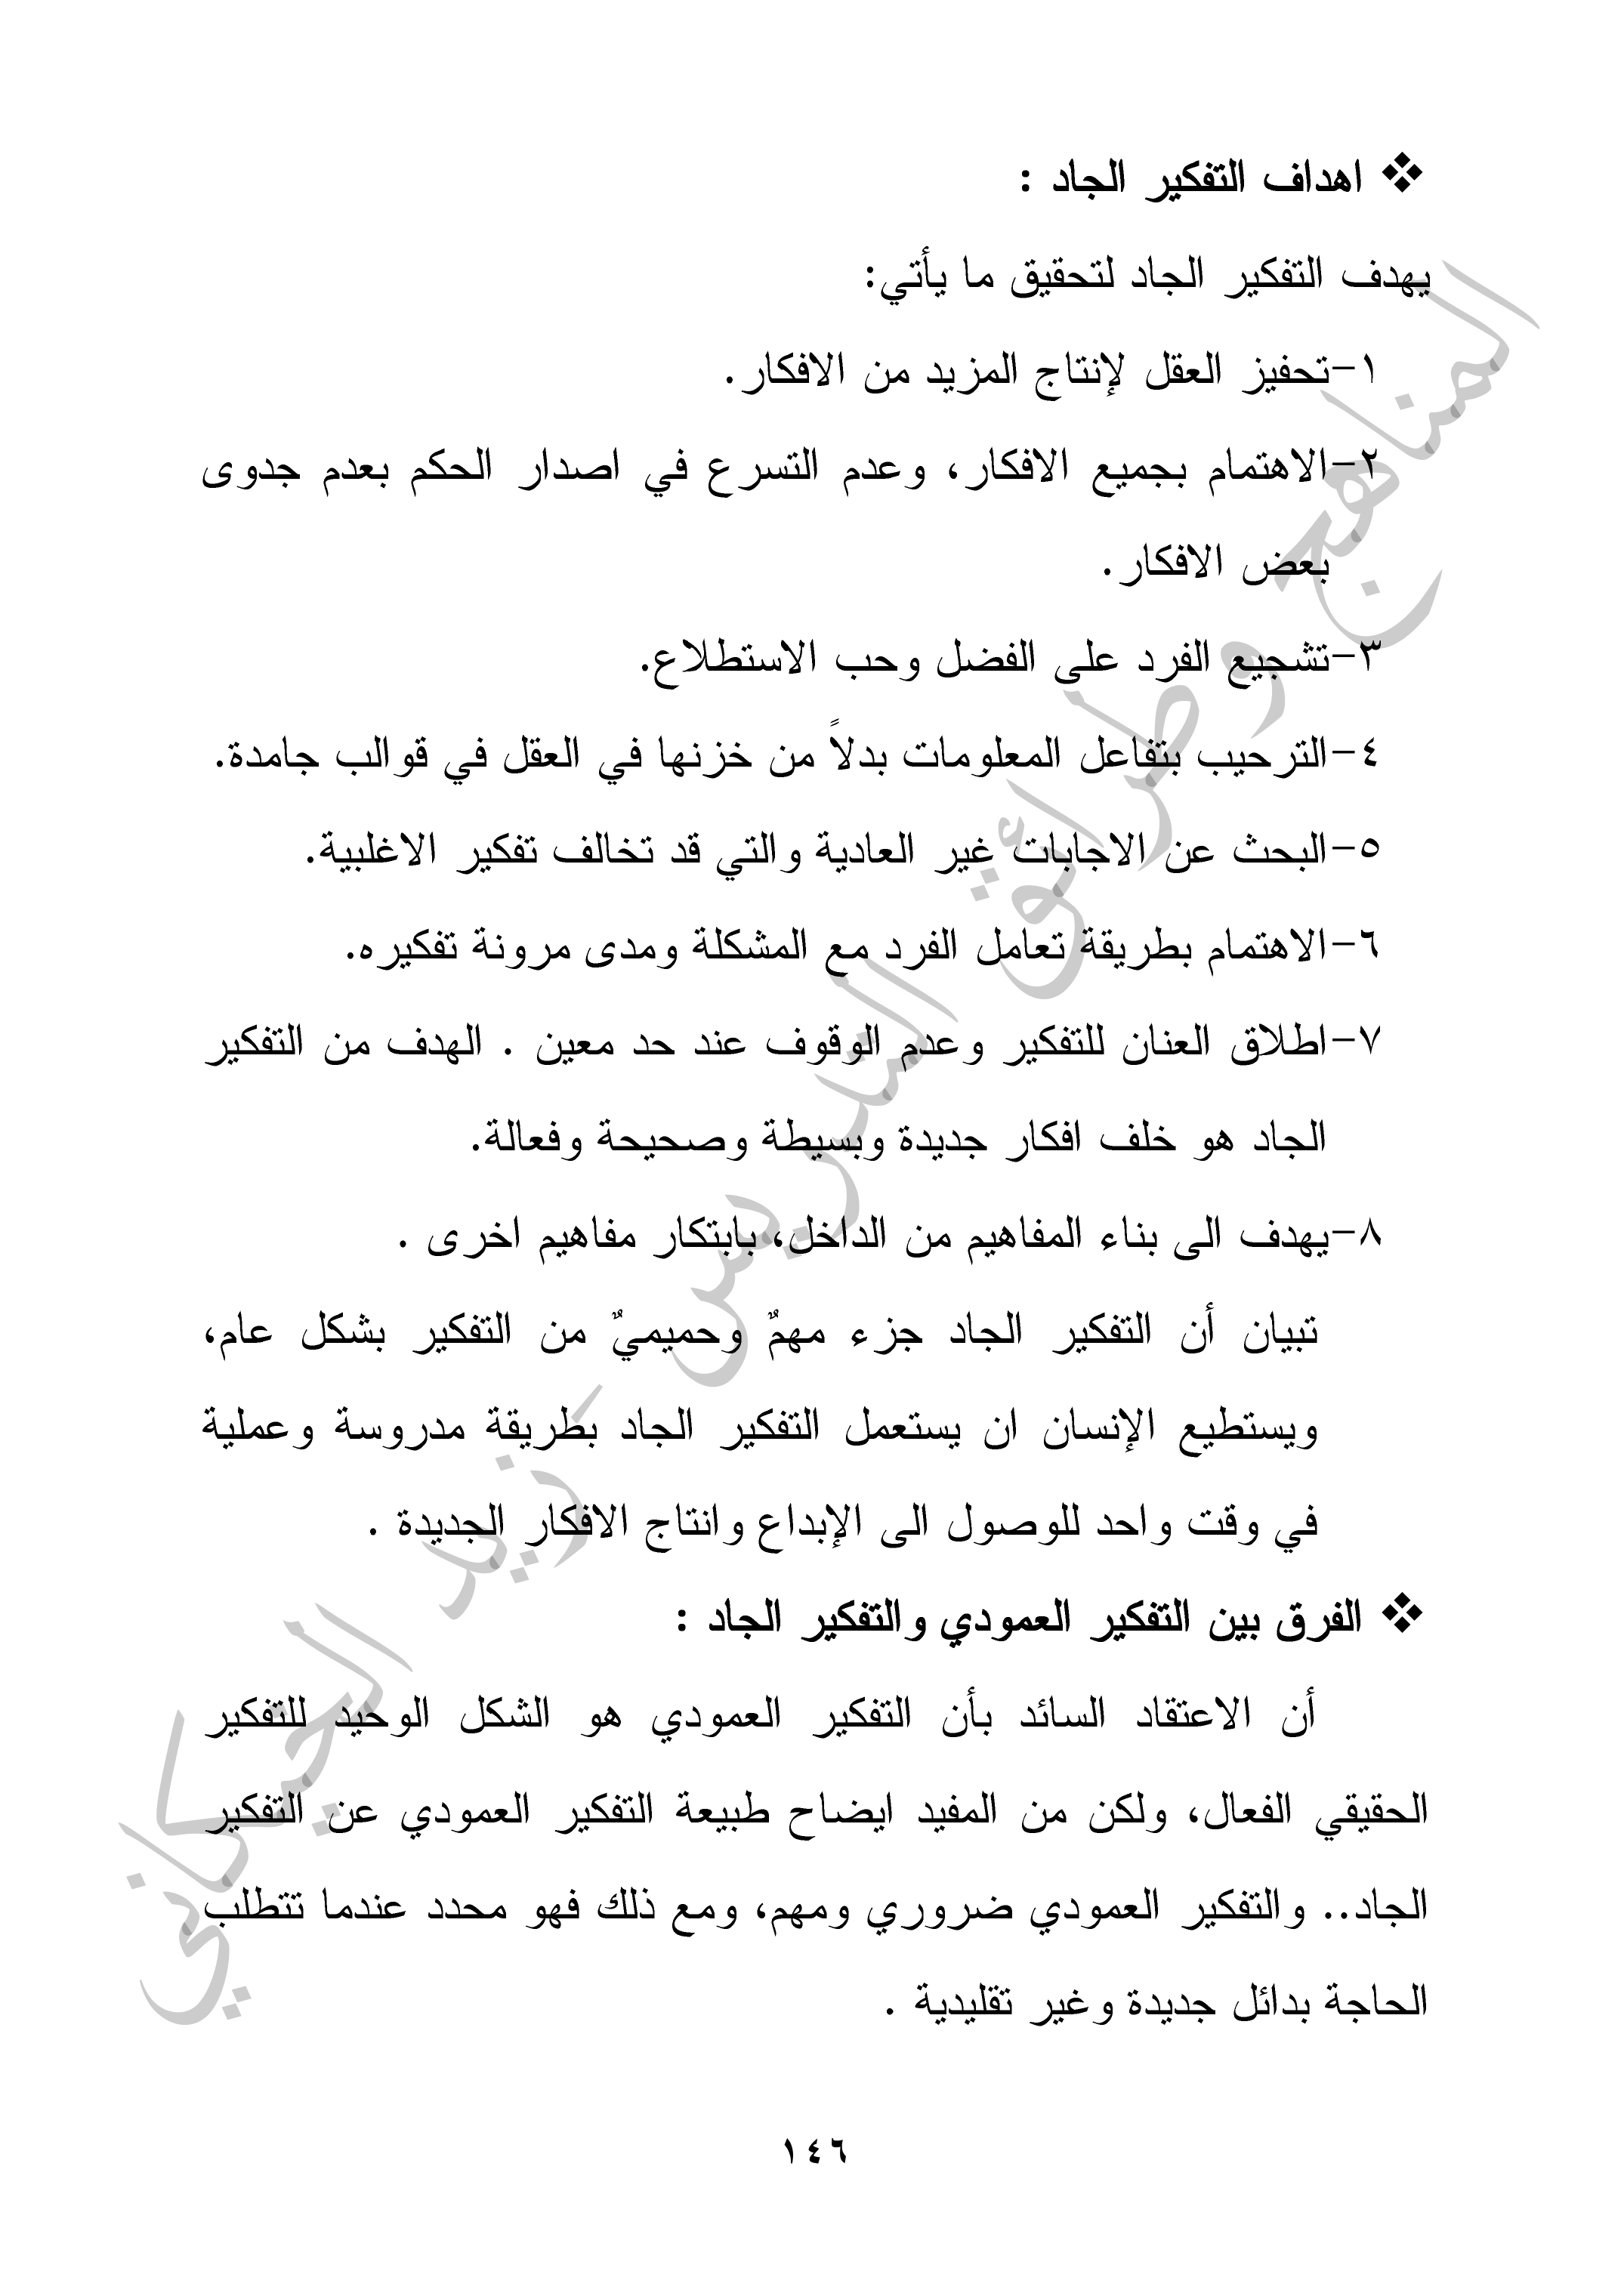 ❖ اهداف التفكير الجاد :
يهدف التفكير الجاد لتحقيق ما يأتي:
١-تحفيز العقل لإنتاج المزيد من الافكار.
٢-الاهتمام بجميع الافكار، وعدم التسرع في اصدار الحكم بعدم جدوى
بعض الافكار.
٣-تشجيع الفرد على الفضل وحب الاستطلاع.
٤-الترحيب بتفاعل المعلومات بدلاً من خزنها في العقل في قوالب جامدة.
٥-البحث عن الاجابات غير العادية والتي قد تخالف تفكير الاغلبية.
٦-الاهتمام بطريقة تعامل الفرد مع المشكلة ومدى مرونة تفكيره.
٧-اطلاق العنان للتفكير وعدم الوقوف عند حد معين . الهدف من التفكير
الجاد هو خلف افكار جديدة وبسيطة وصحيحة وفعالة.
٨-يهدف الى بناء المفاهيم من الداخل، بابتكار مفاهيم اخرى .
تبيان أن التفكير الجاد جزء مهمٌ وحميميٌ من التفكير بشكل عام،
ويستطيع الإنسان ان يستعمل التفكير الجاد بطريقة مدروسة وعملية
في وقت واحد للوصول الى الإبداع وانتاج الافكار الجديدة .
❖ الفرق بين التفكير العمودي والتفكير الجاد :
أن الاعتقاد السائد بأن التفكير العمودي هو الشكل الوحيد للتفكير
الحقيقي الفعال، ولكن من المفيد ايضاح طبيعة التفكير العمودي عن التفكير
الجاد.. والتفكير العمودي ضروري ومهم، ومع ذلك فهو محدد عندما تتطلب
الحاجة بدائل جديدة وغير تقليدية .
١٤٦
المناهج وطرائق التدريس _ زيد الحيكاني